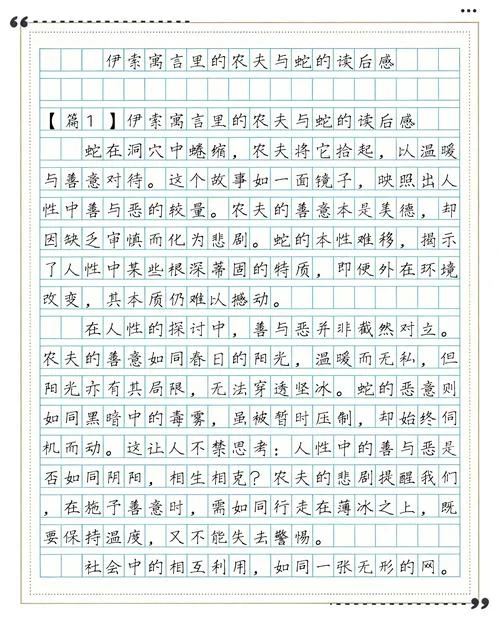 伊索寓言里的农夫与蛇的读后感
【篇1】伊索寓言里的农夫与蛇的读后感
蛇在洞穴中蜷缩，农夫将它拾起，以温暖
与善意对待。这个故事如一面镜子，映照出人
性中善与恶的较量。农夫的善意本是美德，却
因缺乏审慎而化为悲剧。蛇的本性难移，揭示
了人性中某些根深蒂固的特质，即便外在环境
改变，其本质仍难以撼动。
在人性的探讨中，善与恶并非截然对立。
农夫的善意如同春日的阳光，温暖而无私，但
阳光亦有其局限，无法穿透坚冰。蛇的恶意则
如同黑暗中的毒雾，虽被暂时压制，却始终伺
机而动。这让人不禁思考：人性中的善与恶是
否如同阴阳，相生相克？农夫的悲剧提醒我们
，在施予善意时，需如同行走在薄冰之上，既
要保持温度，又不能失去警惕。
社会中的相互利用，如同一张无形的网。